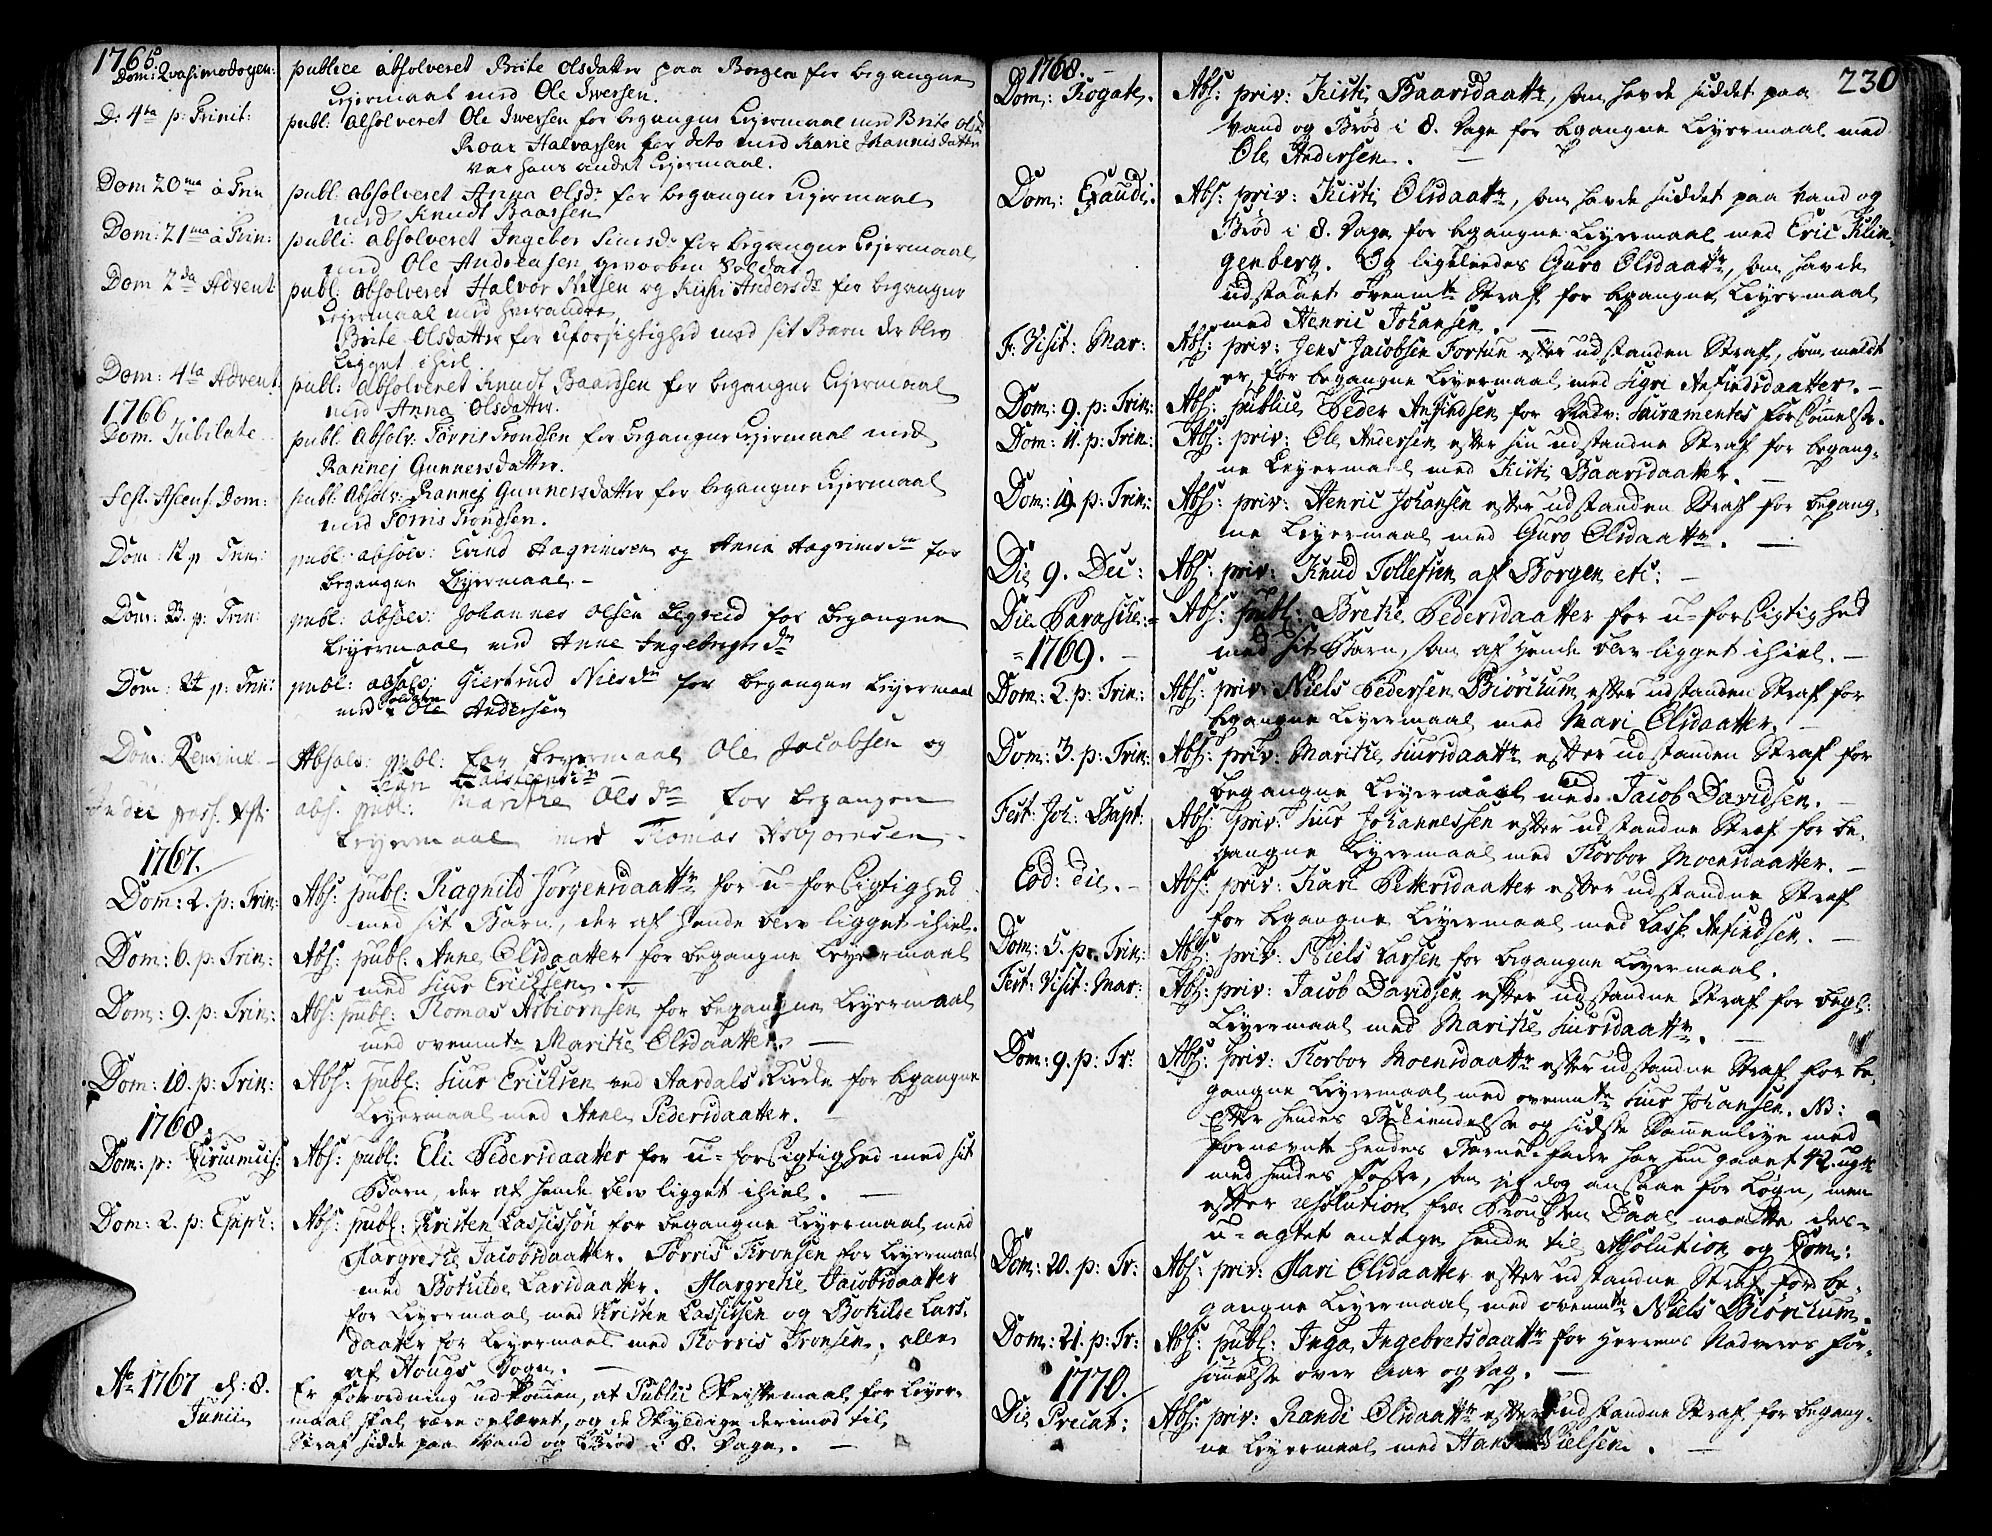 1766
Dom: Qvasimodogen: publice absolveret Brite Olsdatter paa Borgen for begangne
Lejermaal med Ole Iwersen.
D: 4ta p: Trinit: publ: absolveret Ole Iwersen for begangne Lejermaal med Brite Olsd
Roar Halvarsen for dito med Karie Johannisdatter
var hans andet Lejermaal.
Dom 20ma à Trin publ: absolveret Anna Olsdr for begangne Lejermaal
med Knudt Baarsen
Dom: 21ma à Trin: publ: absolveret Ingebor Siursdr for begangne Lejermaal
med Ole Andreasen gevorben Soldat
Dom 2da Advent publ: absolveret Halvor Nilsen og Kisti Andersdr for begangne
Lejermaal med hverandre
Brite Olsdatter for uforsigtighed med sit Barn der blev
ligget ihiel.
Dom: 4ta Advent: publ: absolveret Knudt Baardsen for begangne Lejermaal
med Anna Olsdatter.
1766
Dom. Jubilate publ: Absolv: Tørris Trondsen for begangne Lejermaal med
Rannej Gunnersdatter.
Fest. Ascens. Dom: publ: Absolv: Rannej Gunnersdatter for begangne Lejermaal
med Torris Trondsen.
Dom: 12 p Trin: publ: absolv: Evind Aagrimsen og Anna Aagrimsdr for
begangne Leyermaal. -
Dom: 13. p: Trin: publ: absolv: Johannes Olsen Legreid for begangne
Leyermaal med Anne Ingebrigtsdr
Dom: 24 p: Trin: publ: absolv: Giertrud Nielsdr for begangne Leyermaal
med Soldaten Ole Andersen
Dom: Reminisc - Absolv: publ: for Leyermaal Ole Jacobsen og
In die pass. Xsti abs: publ: Marithe Olsdr for begangen
Leyermaal med Thomas Asbjørnsen -
1767.
Dom: 2. p: Trin: Abs: publ: Ragnild Jørgensdaattr for u-forsigtighed
med sit Barn, der af hende blev ligget ihiel.
Dom: 6. p: Trin: Abs: publ: Anne Olsdaatter for begangne Leyermaal
med Siur Ericksen. -
Dom: 9. p: Trin: Abs: publ: Thomas Asbiørnsen for begangne Leyermaal
med ovenmte Marithe Olsdaatter. -
Dom: 10. p: Trin: Abs: publ: Siur Ericksen ved Aardals Kirke for begangne
Leyermaal med Anne Pedersdaatter. -
1768.
Dom: p: Circumcis: Abs: publ: Eli Pedersdaatter for u-forsigtighed med sit
Barn, der af hende blev ligget ihiel. -
Dom: 2. p: Epiph: Abs: publ: Kristen Lassissøn for begangne Leyermaal med
Margrethe Jacobsdaatter. Tørris Tronsen for Leyermaal
med Bothilde Larsdaatter. Margrethe Jacobsdaatter
for Leyermaal med Kristen Lassissen og Bothilde Lars-
daatter for Leyermaal med Thorris Tronsen, alle
af Hougs Sogn. -
Ao 1767 d: 8. Junii Er Forordning udkommen, at Public Skriftemaal for Leyer-
maal skal være ophævet, og de Skyldige derimod til
Straf sidde paa Vand og Brød i 8. Dage. -
230
1768. -
Dom: Rogate. Abs: priv: Kisti Baarsdaattr, som havde siddet paa
Vand og Brød i 8. Dage for begangne Leyermaal med
Ole Andersen. -
Dom: Exaudi. Abs: priv: Kisti Olsdaattr, som havde siddet paa Vand og
Brød i 8. Dage for begangne Leyermaal med Eric Klin-
genberg. Og ligeledes Guro Olsdaattr, som havde
udstaaet ovenmte Straf for begangne Leyermaal
med Henric Johansen. -
F: Visit: Mar: Abs: priv: Jens Jacobsen Fortun efter udstanden Straf, som meldt
er, for begangne Leyermaal med Sigri Anfindsdaatter. -
Dom: 9. p: Trin: Abs: publice Peder Anfindsen for Nadv: Sacramentes forsømmelse.
Dom: 11. p: Trin: Abs: priv: Ole Andersen efter sin udstandne Straf for begang-
ne Leyermaal med Kisti Baarsdaatter. -
Dom: 19. p: Trin: Abs: priv: Henric Johansen efter udstanden Straf for begang-
ne Leyermaal med Guro Olsdaattr. -
Die 9. Dec: Abs: priv: Knud Tollefsen af Borgen etc: -
Die Parasche: Abs: publ: Brethe Pedersdaatter for u-forsigtighed
med sit Barn, som af hende blev ligget ihiel. -
1769. -
Dom: 2. p: Trin: Abs: priv: Niels Pedersen Biørckum efter udstanden Straf for
begangne Leyermaal med Mari Olsdaatter. -
Dom: 3. p: Trin: Abs: priv: Marithe Siursdaattr efter udstanden Straf for
begangne Leyermaal med Jacob Davidsen. -
Fest: Joh: Bapt: Abs: priv: Siur Johannessen efter udstandne Straf for be-
gangne Leyermaal med Thorbor Moensdaatter. -
Eod: die. - Abs: priv: Kari Pettersdaatter efter udstandne Straf
for begangne Leyermaal med Lasse Anfindsen. -
Dom: 5. p: Trin: Abs: priv: Niels Larsen for begangne Leyermaal.
Fest: Visit: Mar: Abs: priv: Jacob Davidsen efter udstandne Straf for begl:
Leyermaal med Marithe Siursdaattr. -
Dom: 9. p: Tr: Abs: priv: Thorbor Moensdaattr efter udstandne Straf for be-
gangne Leyermaal med ovenmte Siur Johansen. NB:
Efter hendes Bekiendelse og sidste Sammenleye med
fornævnte hendes Barne-fader har hun gaaet 42. ugr
med hendes Foster, som vel dog ansaae for Løgn, men
efter resolution fra Provsten Daal maatte des-
u-agtet antage hende til Absolution og Com:
Dom: 20. p: Tr: Abs: priv: Mari Olsdaatter efter udstandne Straf for be-
gangne Leyermaal med ovenmte Niels Biørckum.
Dom: 21. p: Tr: Abs: publ: Inga Ingebretsdaattr for Herrens Nadveres for-
sømmelse over Aar og Dag. -
1770.
Die Precat: Abs: priv: Randi Olsdaattr efter udstandne Straf for begang-
ne Leyermaal med Hans Nielsen. -